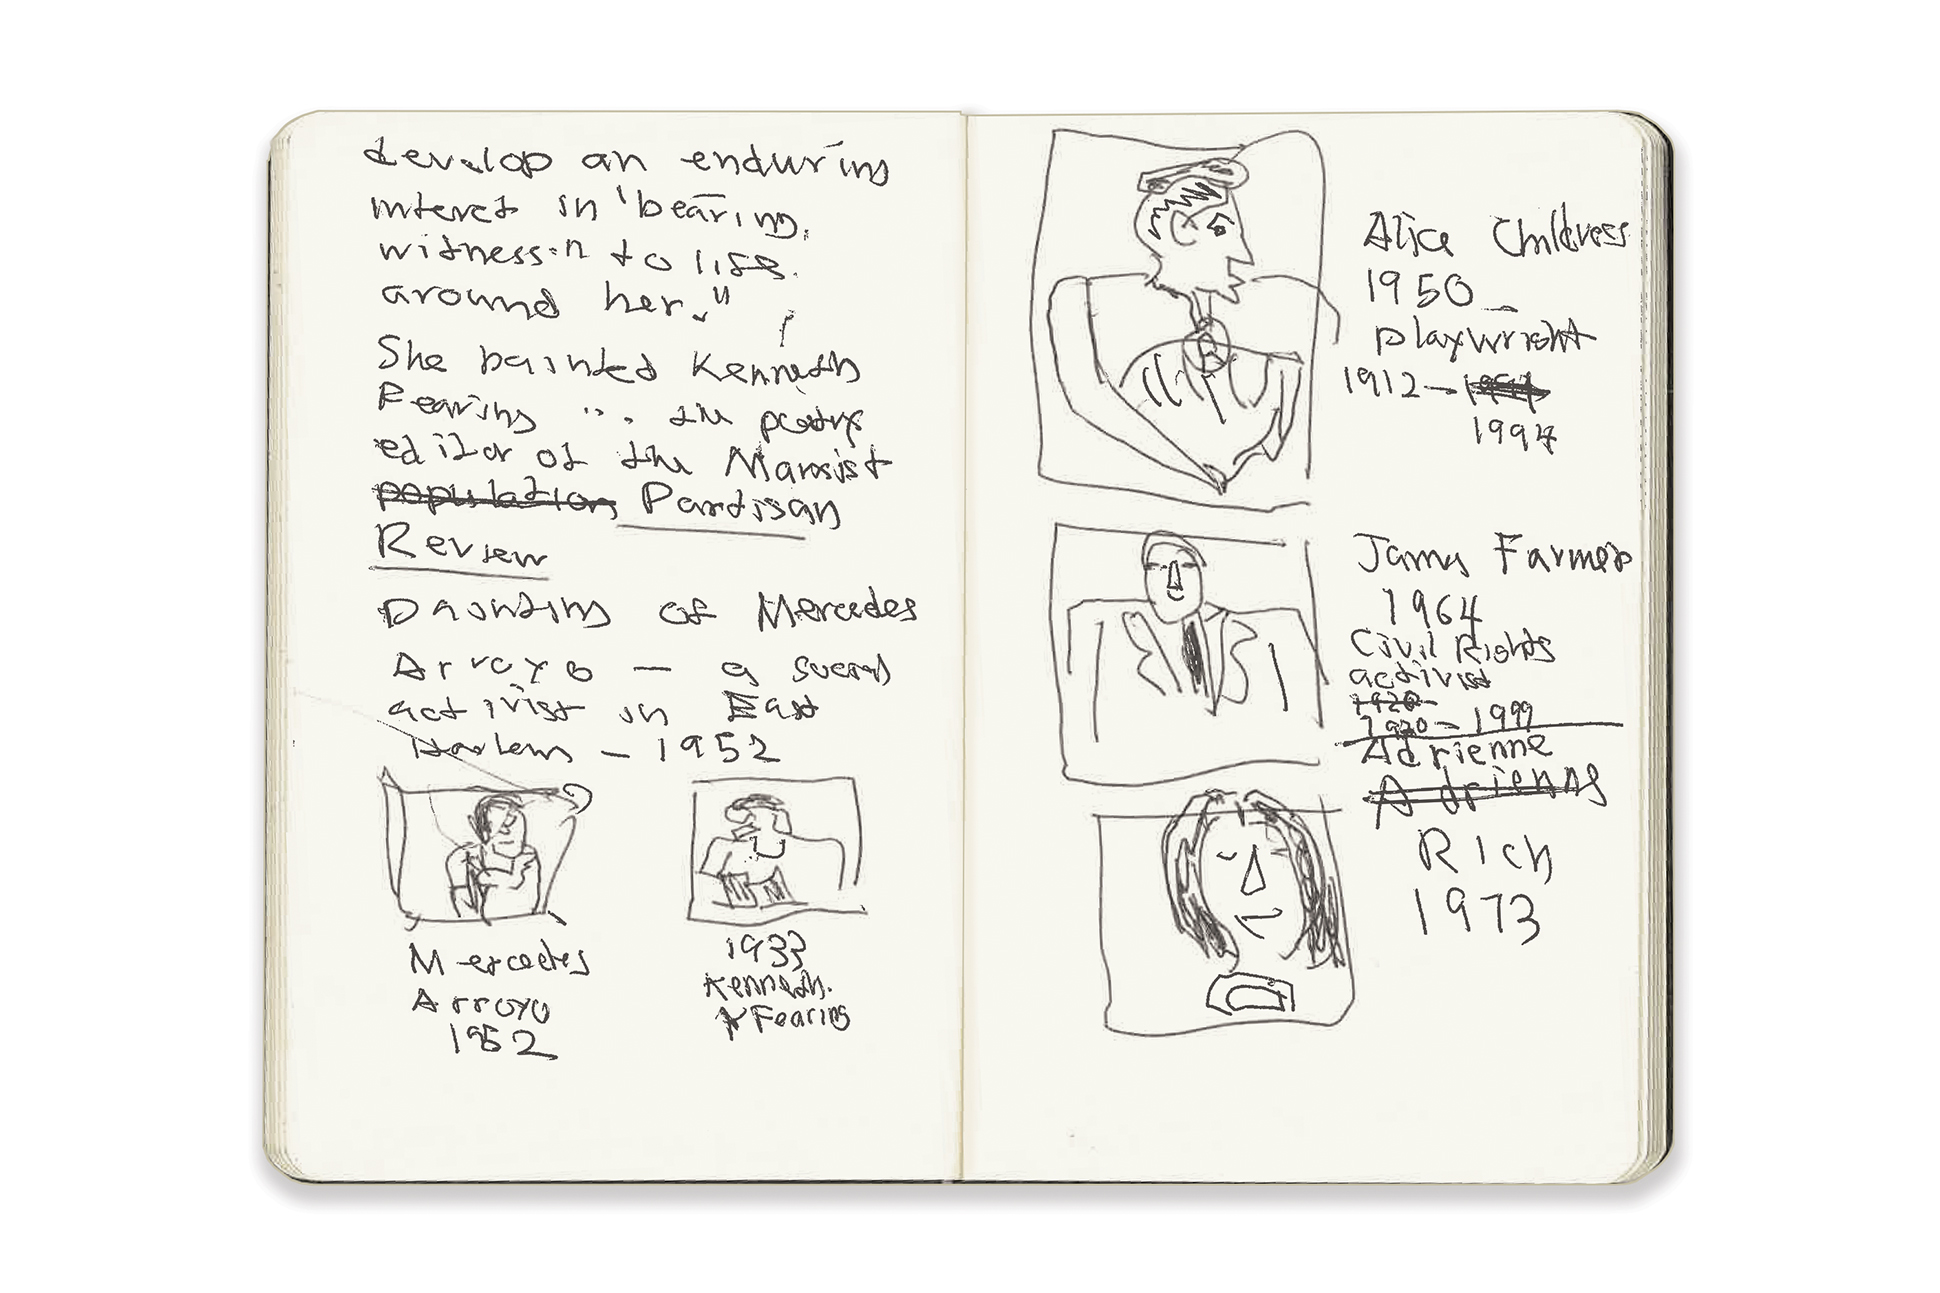 develop an enduring
interest in "bearing
witness" to life
around her."
She painted Kenneth
Fearing ... the poetry
editor of the Marxist
population Partisan
Review
Painting of Mercedes
Arroyo — a
activist in East
Harlem — 1952
Mercedes
Arroyo
1952
1933
Kenneth
Fearing
Alice Childress
1950 —
playwright
1912 —
1994
James Farmer
1964
Civil Rights
activist
1920 -
1920 - 1999
Adrienne
Adrienne
Rich
1973